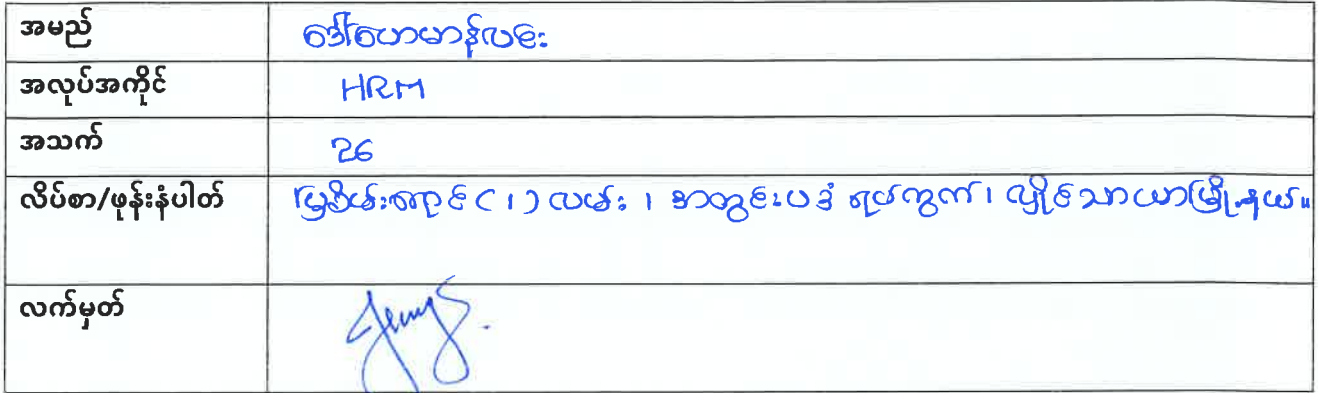 အမည် ဒေါ်ဟေမာန်လင်း
အလုပ်အကိုင် HRM
အသက် 26
လိပ်စာ/ဖုန်းနံပါတ် မြစိမ်းရောင်(၁)လမ်း ၊ အတွင်းပဒုံ ရပ်ကွက်၊ လှိုင်သာယာမြို့နယ်။
လက်မှတ်